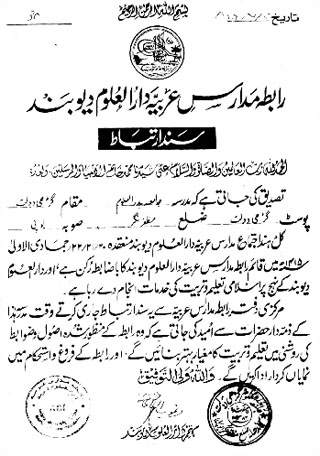 بسم اللہ الرحمن الرحیم
تاریخ
رابطہ مدارس عربیہ دارالعلوم دیوبند
سند ارتباط
الحمد للہ رب العالمین والصلوٰۃ والسلام علیٰ سیدنا محمد خاتم الانبیاء والمرسلین، وبعد:
تصدیق کی جاتی ہے کہ مدرسہ جامعہ بدرالعلوم مقام گڑھی دولت
پوسٹ گڑھی دولت ضلع مظفرنگر صوبہ یوپی
کل ہند اجتماع مدارس عربیہ دارالعلوم دیوبند منعقدہ ۲۰/۲۲ جمادی الاولیٰ
۱۴۱۵ھ میں قائم رابطہ مدارس عربیہ دارالعلوم دیوبند کا باضابطہ رکن ہے، اور دارالعلوم
دیوبند کے نہج پر اسلامی تعلیم و تربیت کی خدمات انجام دے رہا ہے۔
مرکزی دفتر رابطہ مدارس عربیہ سے یہ سند ارتباط جاری کرتے وقت مدرسہ ہذا
کے ذمہ دار حضرات سے امید کی جاتی ہے کہ وہ رابطہ کے منظور شدہ اصول و ضوابط
کی روشنی میں تعلیم و تربیت کا معیار بہتر بنائیں گے، اور رابطہ کے فروغ و استحکام میں
نمایاں کردار ادا کریں گے۔ واللہ ولی التوفیق